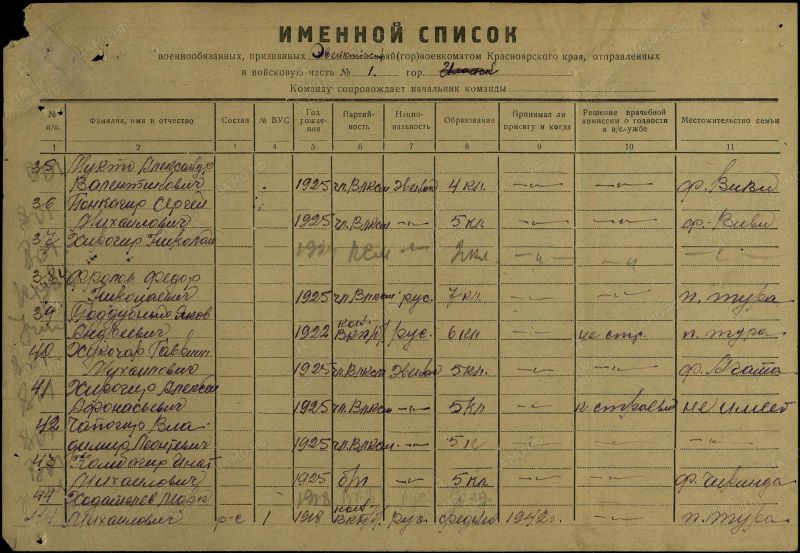 ИМЕННОЙ СПИСОК
военнообязанных, призванных Эвенкийск рай(гор)военкоматом Красноярского края, отправленных
в войсковую часть № 1. гор.
Команду сопровождает начальник команды
№ п/п. Фамилия, имя и отчество Состав № ВУС Год рождения Партийность Национальность Образование Принимал ли присягу и когда Решение врачебной комиссии о годности в в/службе Местожительство семьи
1 2 3 4 5 6 7 8 9 10 11
35 Александр
Валентинович 1925 чл. Влксм Эвенк 4 кл. —„— —„— ф. Виви
36 Сергей
Михаилович 1925 чл. Влксм —„— 5 кл —„— —„— ф. Виви
37 Хирогир Николай
1924 ВЛСМ —„— 2 кл. —„— —„— —„—
38 Фролов Федор
Николаевич 1925 чл. Влксм рус. 7 кл. —„— —„— п. Тура
39 Поддубный Яков
Андреевич 1922 кан. ВКП/б/ рус. 6 кл —„— не стр. п. Тура
40 Гаврил
Михаилович 1925 чл. Влксм Эвенк 5 кл. —„— —„— ф. Агата
41 Хирогир Алексей
Афонасьевич 1925 чл. Влксм —„— 5 кл —„— н строевой не имеет
42 Чапогир Вла-
димир Леонтьевич 1925 чл. Влксм —„— 5 к —„— —„— —„—
43 Комбагир Игнат
Михаилович 1925 б/п —„— 5 кл —„— —„— ф. Чиринда
44 Марк
44 Михаилович р-с 1 1918 кан. ВКП/б/ рус. средн 1942 г. —„— п. Тура